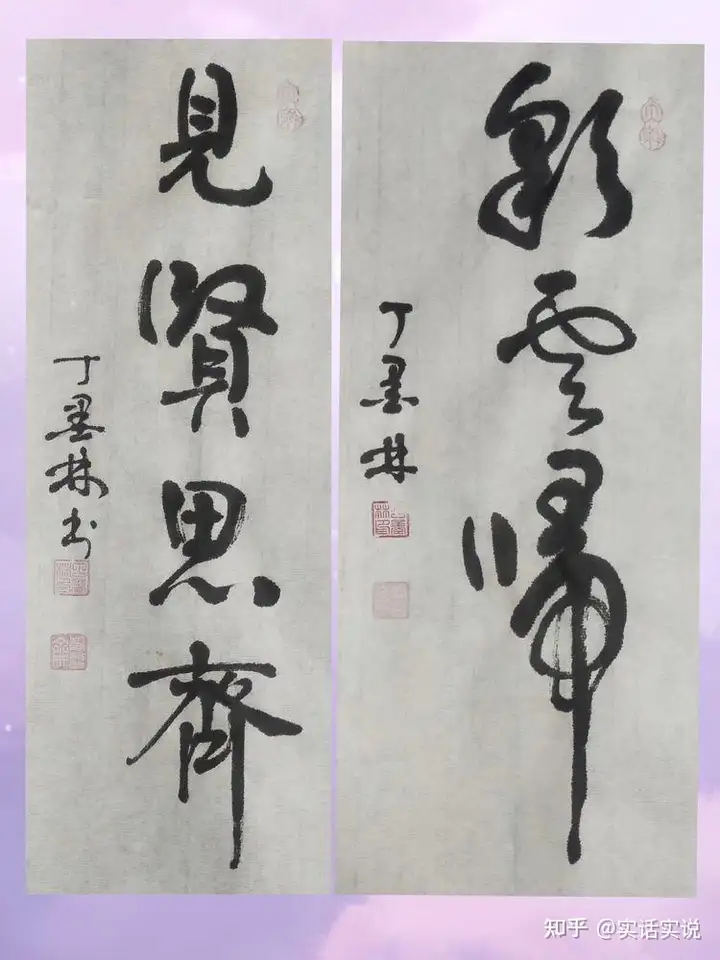 見賢思齊
丁墨林书
彩雲帰
丁墨林
知乎 @实话实说